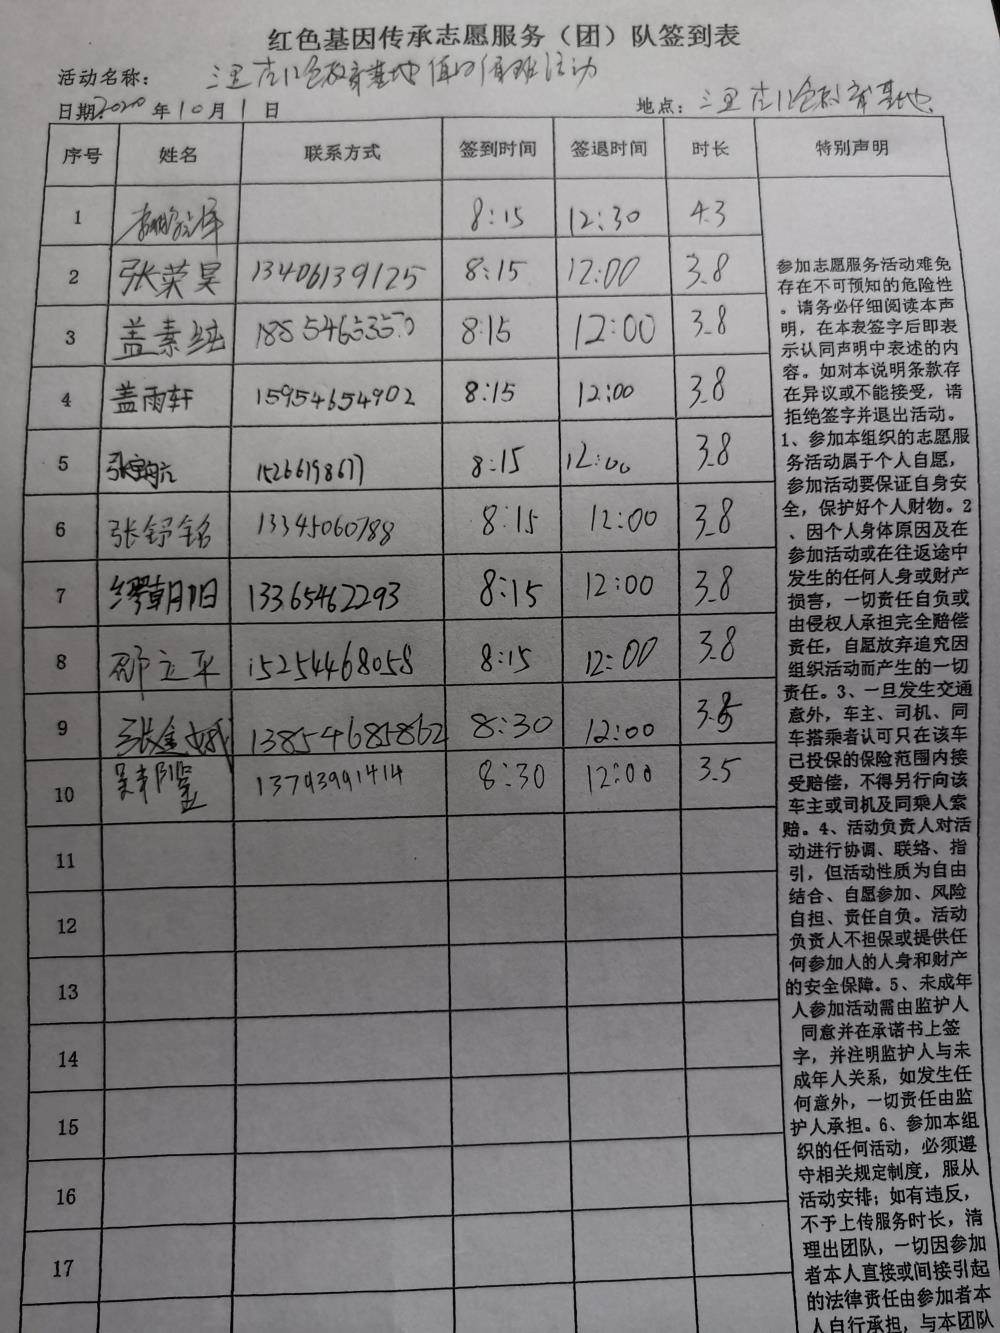 红色基因传承志愿服务（团）队签到表
活动名称： 三里庄红色教育基地值日值班活动
日期2020年10月1日 地点：三里庄红色教育基地
序号 姓名 联系方式 签到时间 签退时间 时长 特别声明
1 8:15 12:30 4.3
2 张荣昊 13406139125 8:15 12:00 3.8
3 盖素纯 18554653550 8:15 12:00 3.8
4 盖雨轩 15954654902 8:15 12:00 3.8
5 15266198677 8:15 12:00 3.8
6 张舒铭 13345060788 8:15 12:00 3.8
7 缪朝阳 13365462293 8:15 12:00 3.8
8 邵立平 15254468058 8:15 12:00 3.8
9 张金娥 13854685862 8:30 12:00 3.5
10 13793991414 8:30 12:00 3.5
11
12
13
14
15
16
17
参加志愿服务活动难免
存在不可预知的危险性
。请务必仔细阅读本声
明，在本表签字后即表
示认同声明中表述的内
容。如对本说明条款存
在异议或不能接受，请
拒绝签字并退出活动。
1、参加本组织的志愿服
务活动属于个人自愿，
参加活动要保证自身安
全，保护好个人财物。2
、因个人身体原因及在
参加活动或在往返途中
发生的任何人身或财产
损害，一切责任自负或
由侵权人承担完全赔偿
责任，自愿放弃追究因
组织活动而产生的一切
责任。3、一旦发生交通
意外，车主、司机、同
车搭乘者认可只在该车
已投保的保险范围内接
受赔偿，不得另行向该
车主或司机及同乘人索
赔。4、活动负责人对活
动进行协调、联络、指
引，但活动性质为自由
结合、自愿参加、风险
自担、责任自负。活动
负责人不担保或提供任
何参加人的人身和财产
的安全保障。5、未成年
人参加活动需由监护人
同意并在承诺书上签
字，并注明监护人与未
成年人关系，如发生任
何意外，一切责任由监
护人承担。6、参加本组
织的任何活动，必须遵
守相关规定制度，服从
活动安排；如有违反，
不予上传服务时长，清
理出团队，一切因参加
者本人直接或间接引起
的法律责任由参加者本
人自行承担，与本团队